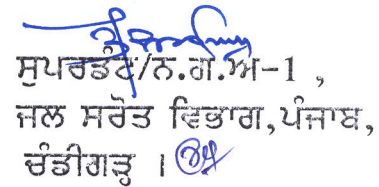 ਸੁਪਰਡੰਟ/ਨ.ਗ.ਅ-1 ,
ਜਲ ਸਰੋਤ ਵਿਭਾਗ,ਪੰਜਾਬ,
ਚੰਡੀਗੜ੍ਹ ।